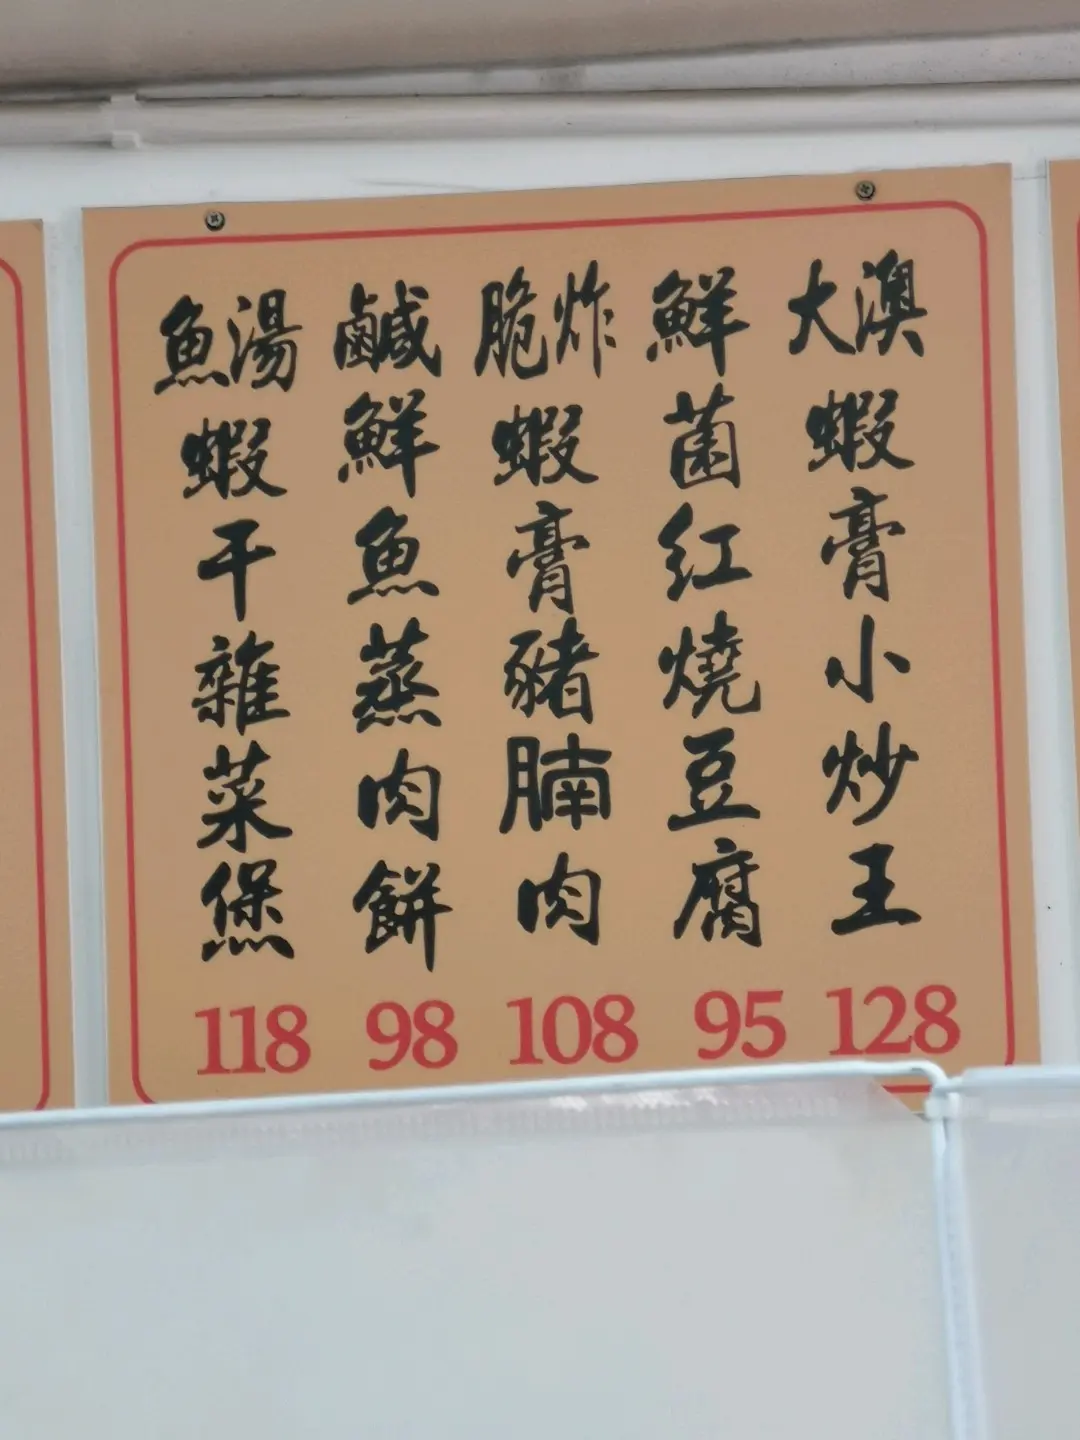 大澳蝦膏小炒王
128
鮮菌紅燒豆腐
95
脆炸蝦膏豬腩肉
108
鹹鮮魚蒸肉餅
98
魚湯蝦干雜菜煲
118